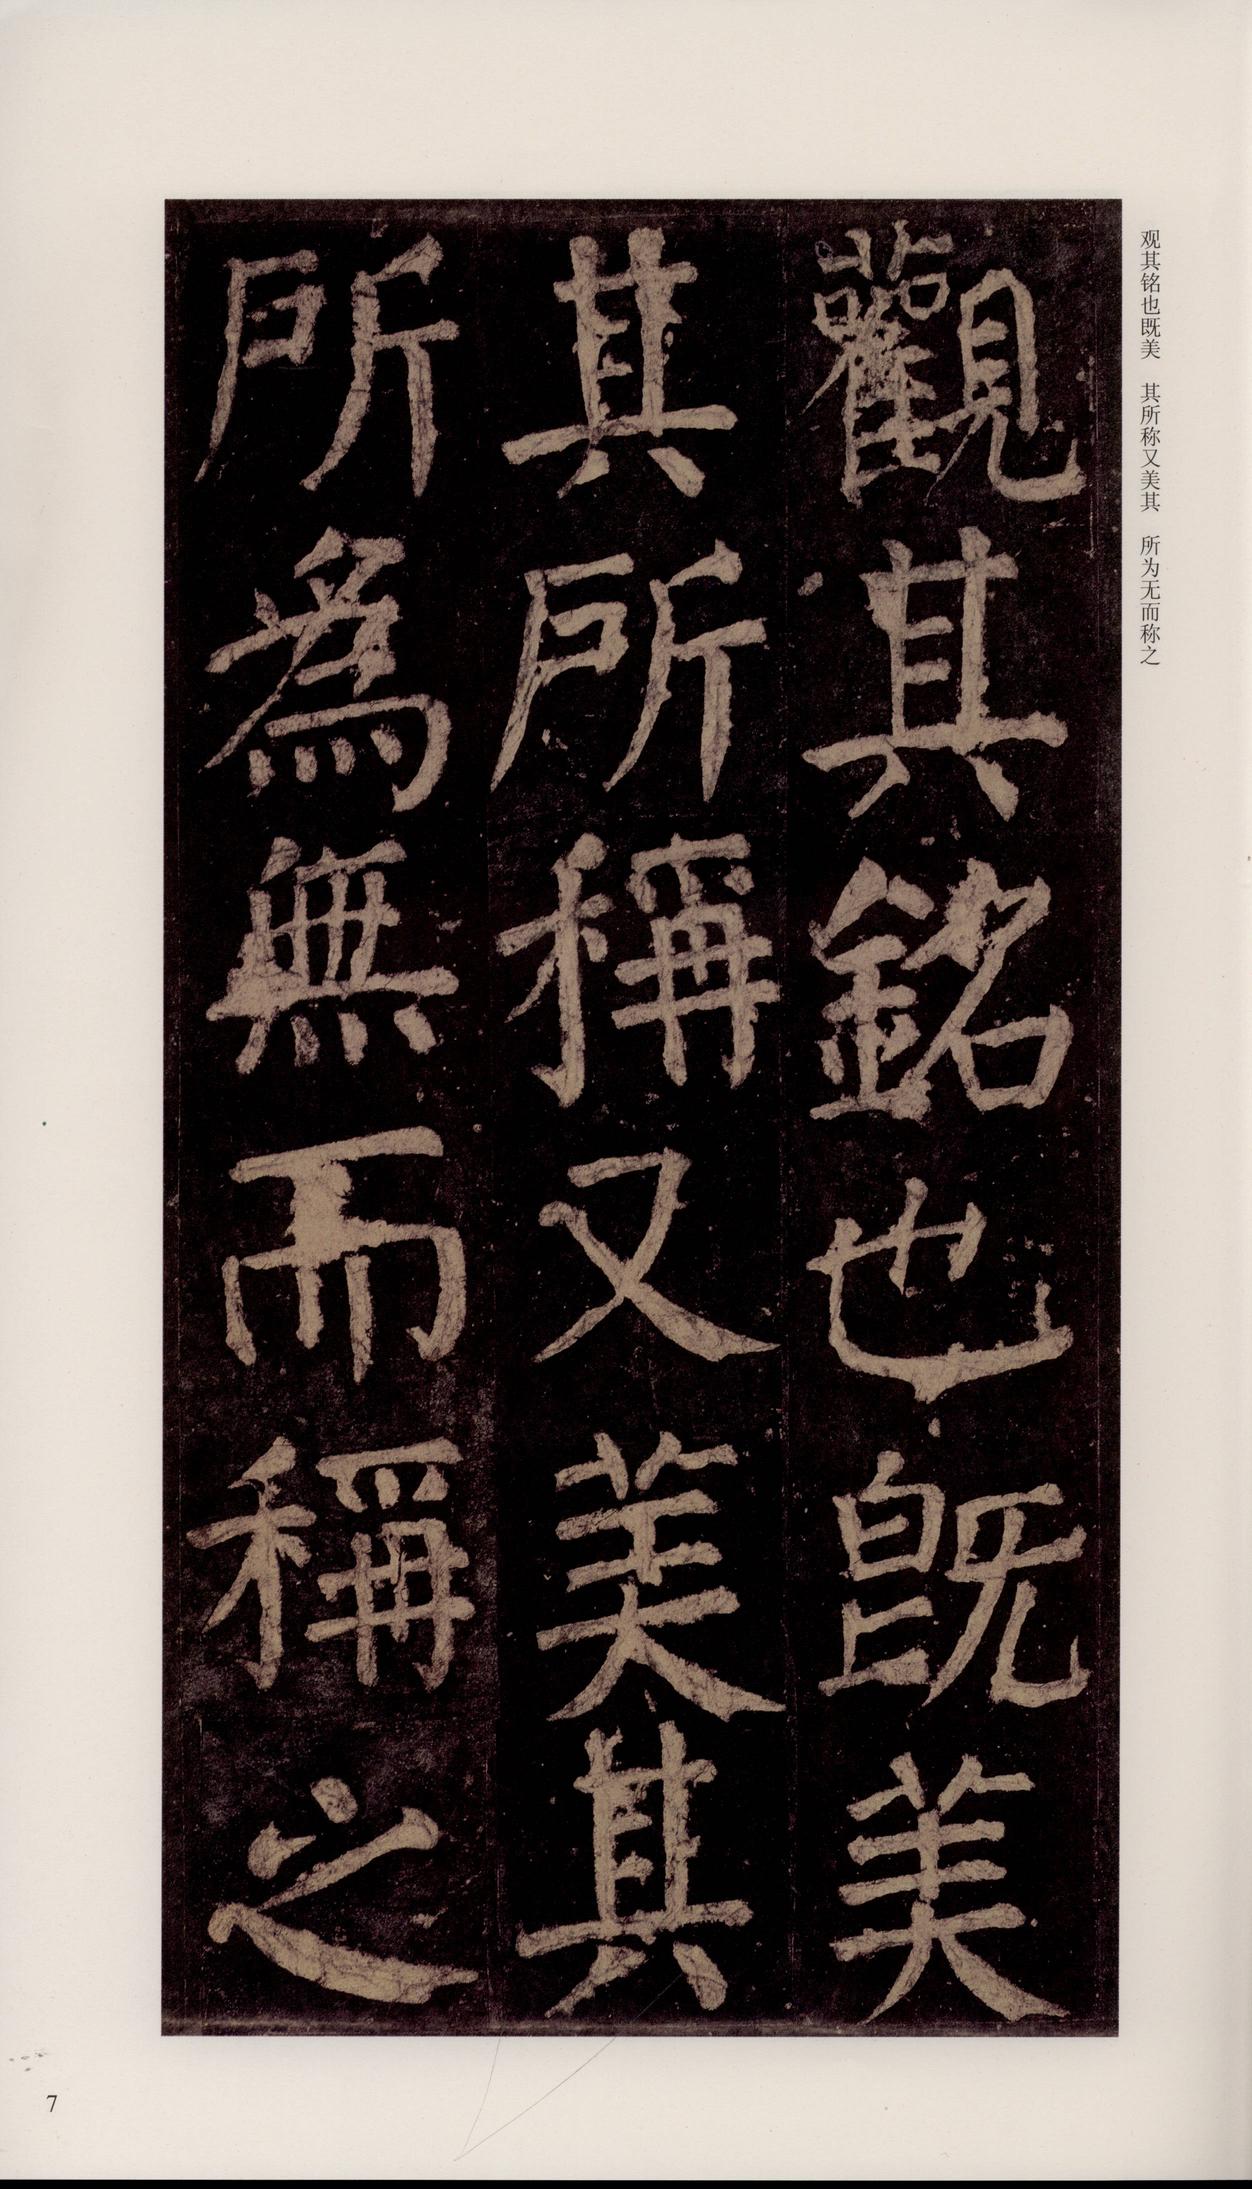 观其铭也既美　其所称又美其　所为无而称之
觀其銘也既美
其所稱又美其
所為無而稱之
7